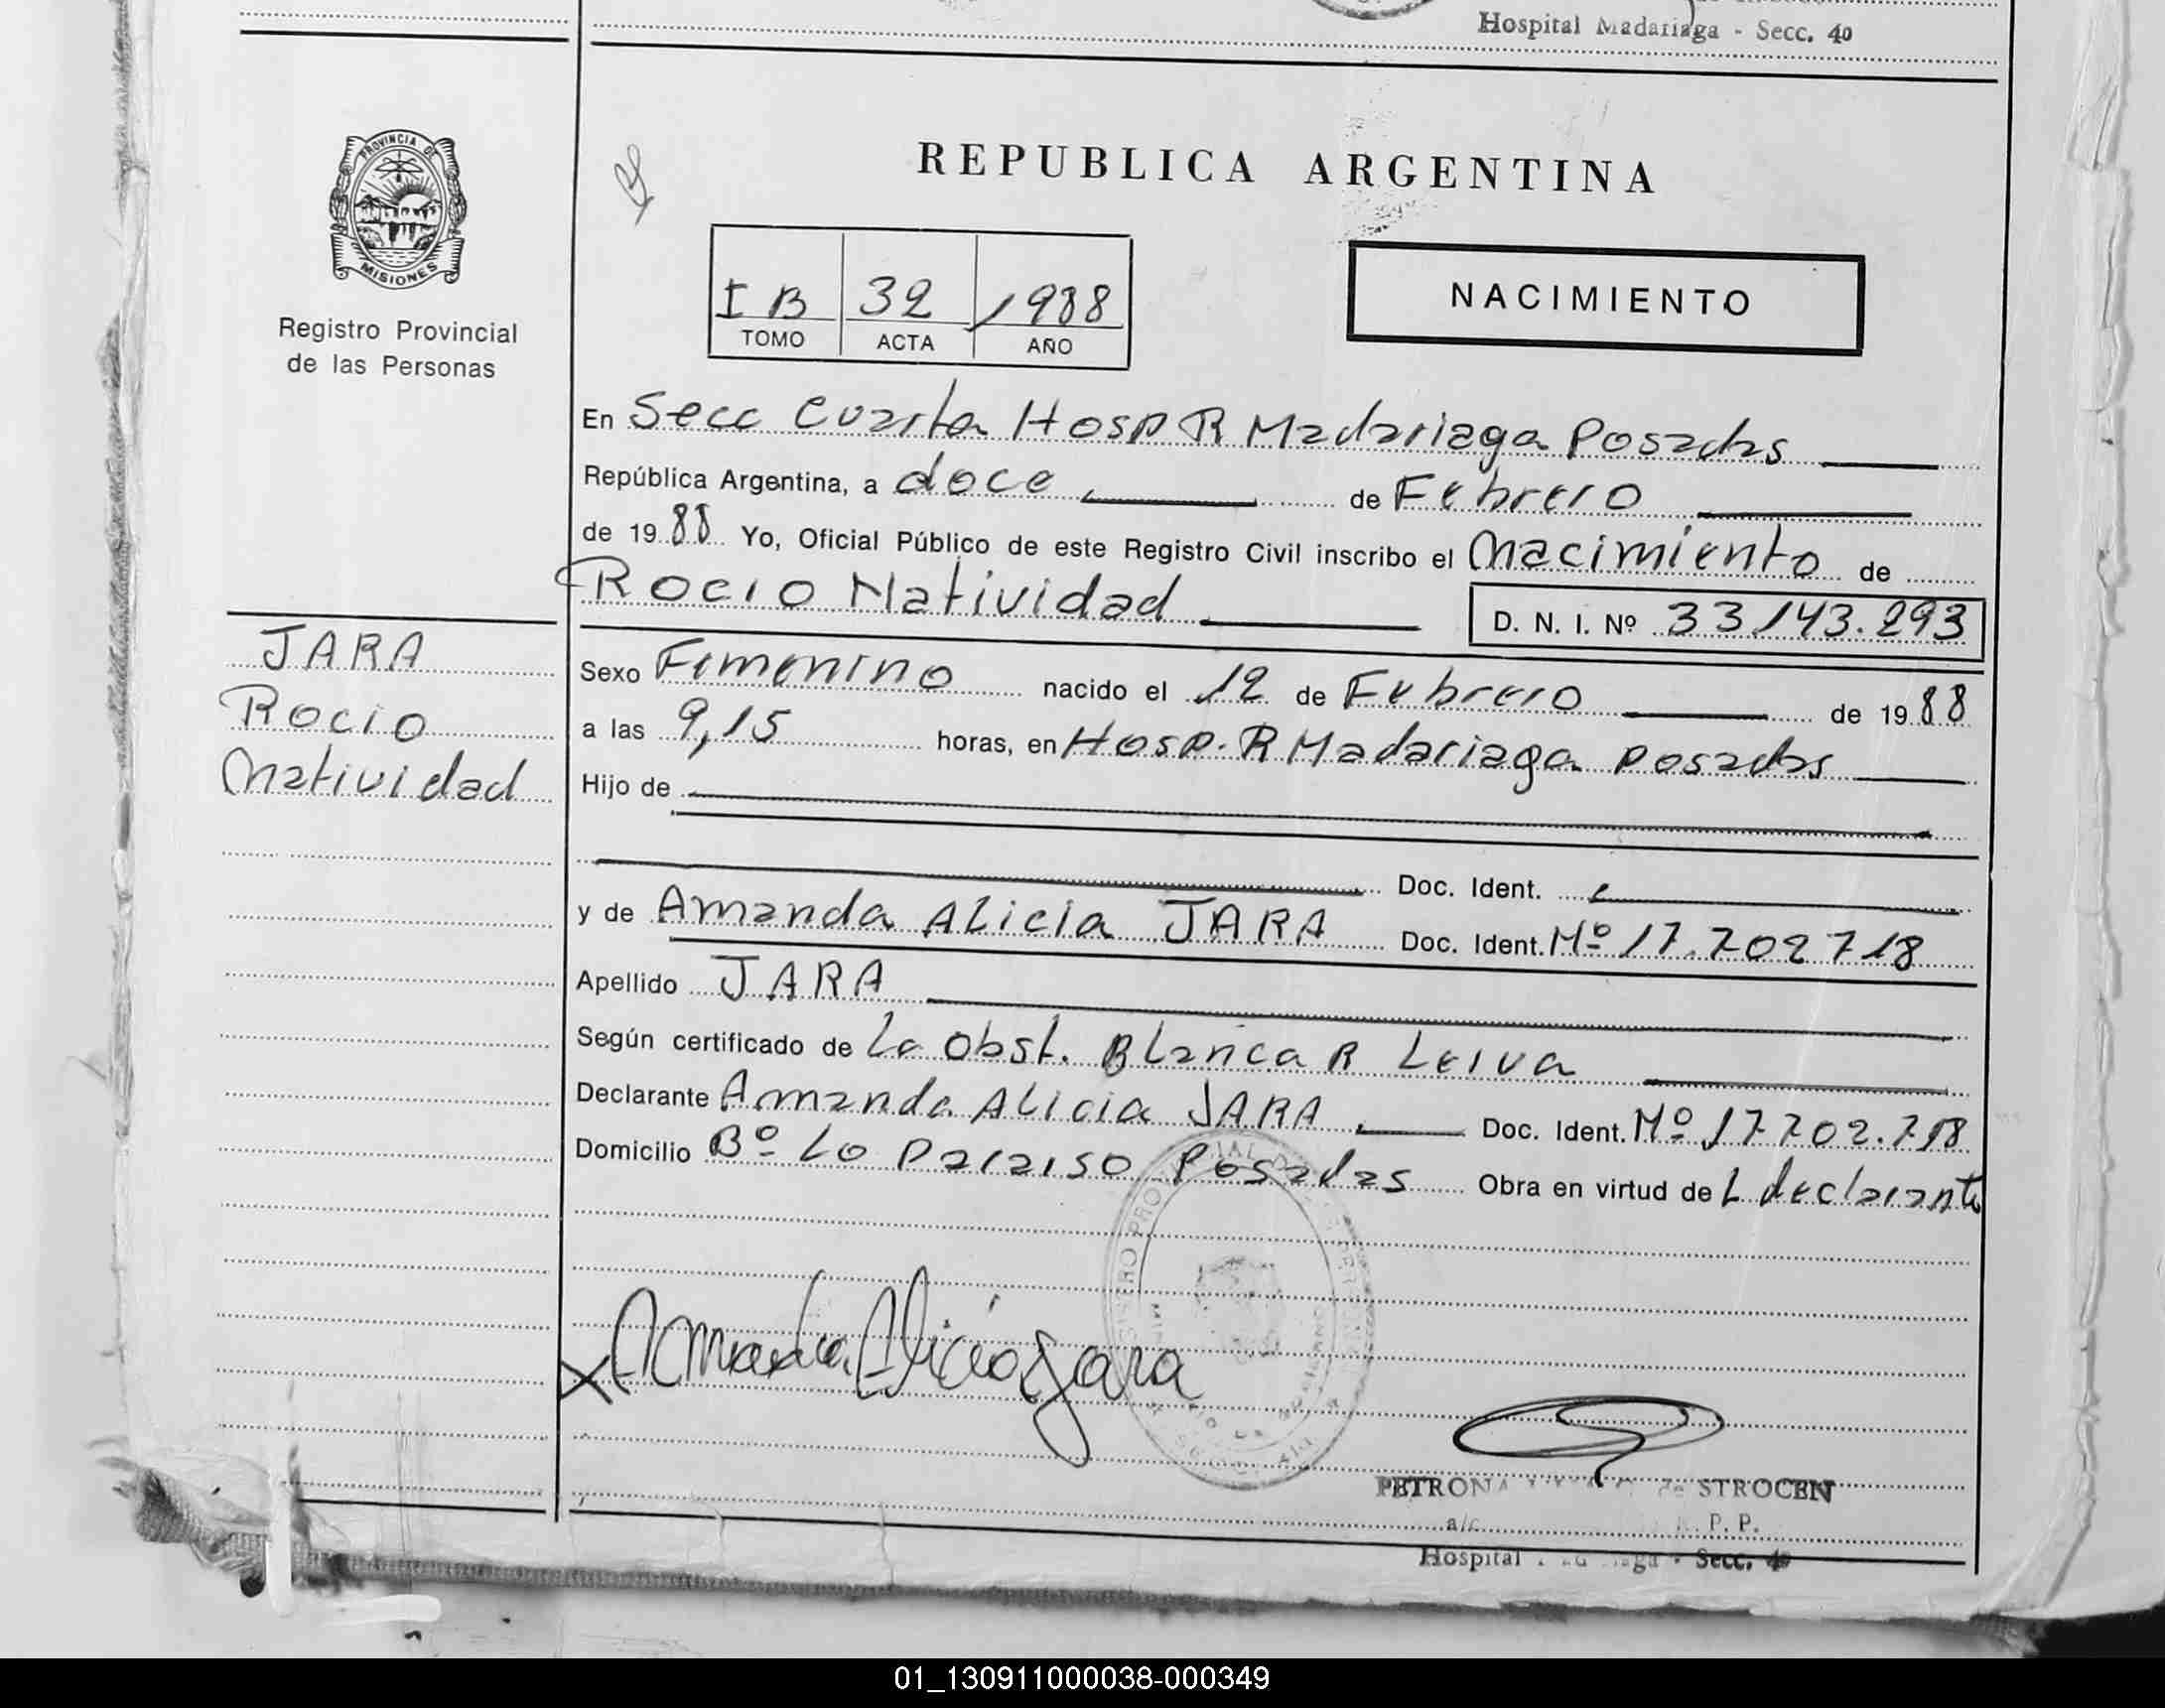 Hospital Madariaga - Secc. 40
PROVINCIA DE
MISIONES
Registro Provincial
de las Personas
REPUBLICA ARGENTINA
I B 32 1988
TOMO ACTA AÑO
NACIMIENTO
En Secc Cuarta Hosp R Madariaga Posadas
República Argentina, a doce de Febrero
de 1988 Yo, Oficial Público de este Registro Civil inscribo el Nacimiento de
Rocio Natividad
D. N. I. Nº 33143.293
JARA
Rocio
Natividad
Sexo Femenino nacido el 12 de Febrero de 1988
a las 9,15 horas, en Hosp. R Madariaga Posadas
Hijo de
Doc. Ident.
y de Amanda Alicia JARA Doc. Ident. Nº 17.702718
Apellido JARA
Según certificado de La Obst. Blanca R Leiva
Declarante Amanda Alicia JARA Doc. Ident. Nº 17702.718
Domicilio Bº Lo Paraiso Posadas Obra en virtud de L declarante
X Amanda Alicia Jara
PETRONA de STROCEN
a/c P. P.
Hospital Secc. 40
01_130911000038-000349